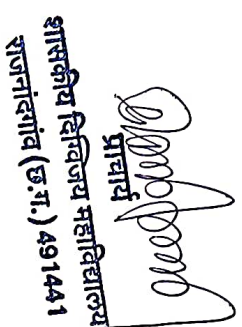 प्राचार्य
शासकीय दिग्विजय महाविद्यालय
राजनांदगांव (छ.ग.) 491441